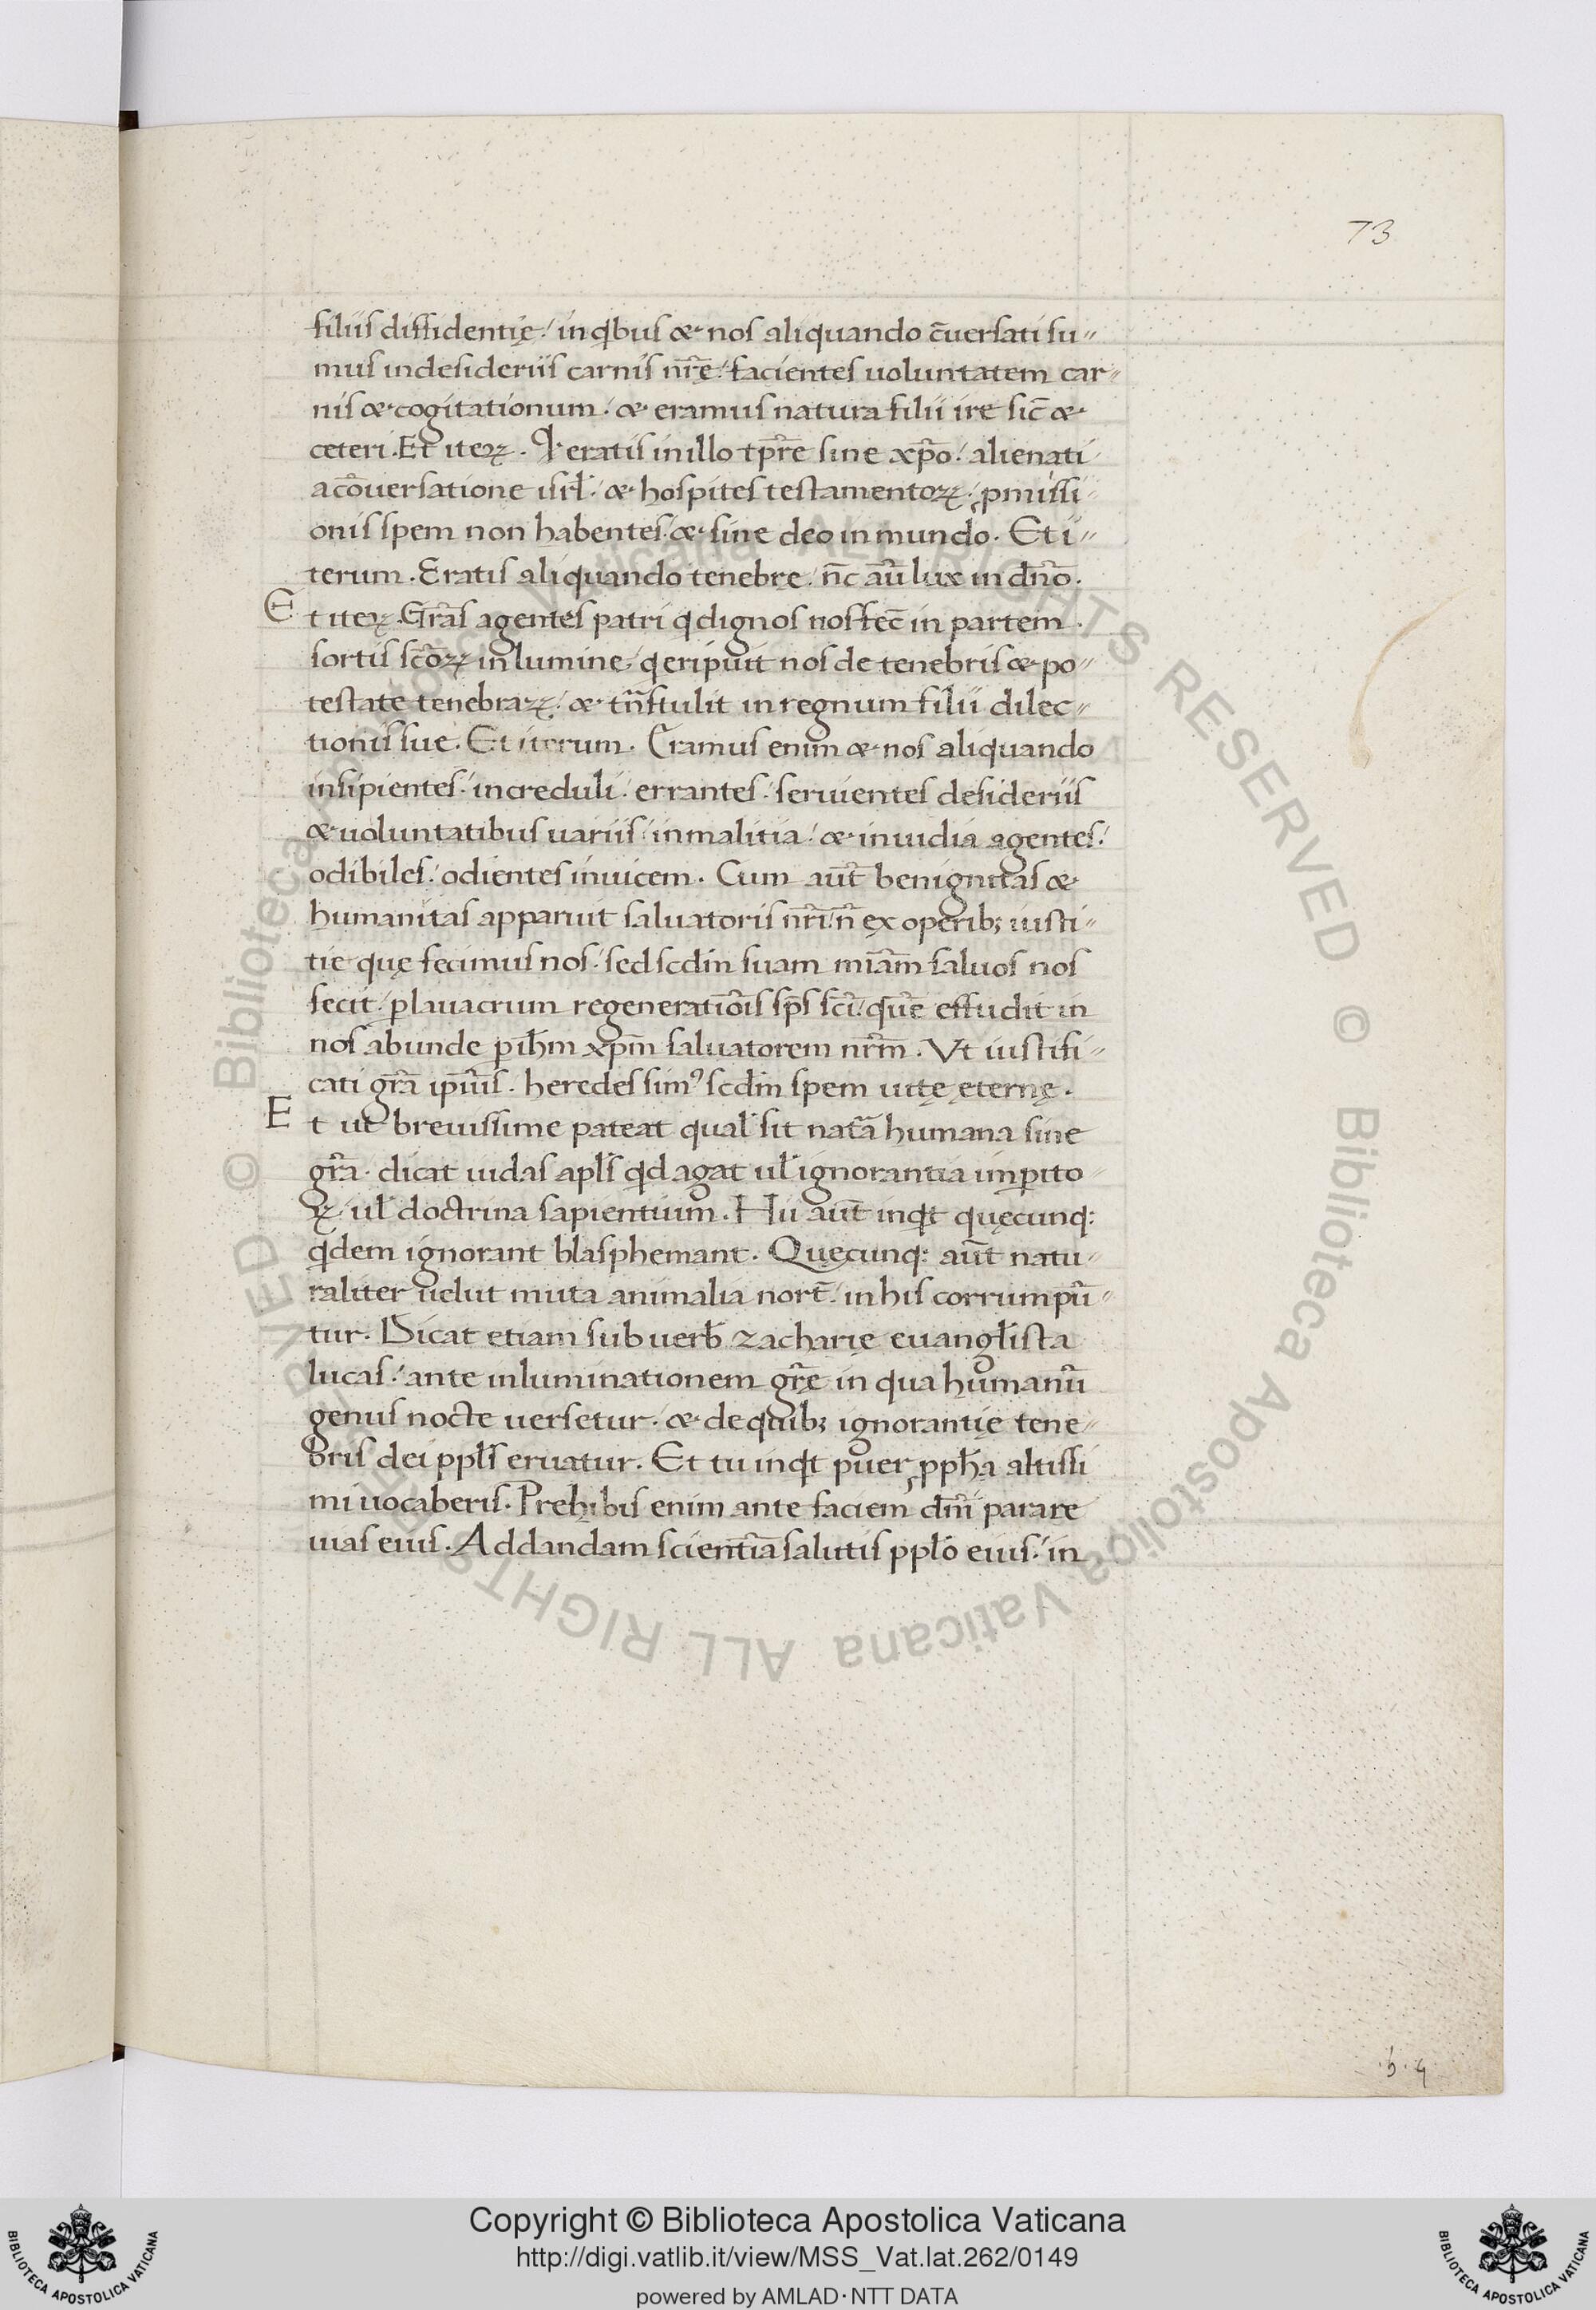 73
filiis diffidentię / in qbus & nos aliquando c̄uersati su〃
mus in desideriis carnis nr̄ę / facientes uoluntatem car〃
nis & cogitationum . & eramus natura filii ire sic̄ &
ceteri . Et iteꝝ . Q̇ eratis in illo tp̄re sine xp̄o / alienati
a cōuersatione isrł / & hospites testamentoꝝ / ꝓmissi〃
onis spem non habentes / & sine deo in mundo . Et i〃
terum . Eratis aliquando tenebre / nc̄ aū lux in dn̄o .
Et iteꝝ . Grās agentes patri q dignos nos fec̄ in partem
sortis scōꝝ in lumine / q eripuit nos de tenebris & po〃
testate tenebraꝝ / & tn̄stulit in regnum filii dilec〃
tionis sue . Et iterum . Eramus enim & nos aliquando
insipientes / increduli / errantes / seruientes desideriis
& uoluntatibus uariis / in malitia / & inuidia agentes /
odibiles / odientes inuicem . Cum aut̄ benignitas &
humanitas apparuit saluatoris nr̄i / n̄ ex operib; iusti〃
tie quę fecimus nos / sed scdm̄ suam miām saluos nos
fecit / ꝑ lauacrum regeneratiōis sp̄s sc̄i / quē effudit in
nos abunde ꝑ ihm̄ xpm̄ saluatorem nrm̄ . Vt iustifi〃
cati grā ipīus . heredes simꝰ scdm̄ spem uitę ęternę .
Et ut breuissime pateat qual' sit natā humana sine
grā . dicat iudas apls̄ qd agat ul' ignorantia imꝑito〃
ꝝ / ul' doctrina sapientium . Hii aut̄ inqt quęcunq:
qdem ignorant blasphemant . Quęcunq: aut̄ natu〃
raliter uelut muta animalia nort̄ / in his corrumpū〃
tur . Dicat etiam sub uerb' zacharię euangł̄ista
lucas / ante inluminationem gr̄ę in qua humanū
genus nocte uersetur / & de quib; ignorantię tene〃
bris dei ppls̄ eruatur . Et tu inqt puer ꝓph̄a altissi
mi uocaberis . Prehibis enim ante faciem dn̄i parare
uias eius . Ad dandam scientiā salutis pplo̅ eius / in
Copyright © Biblioteca Apostolica Vaticana
http://digi.vatlib.it/view/MSS_Vat.lat.262/0149
powered by AMLAD·NTT DATA